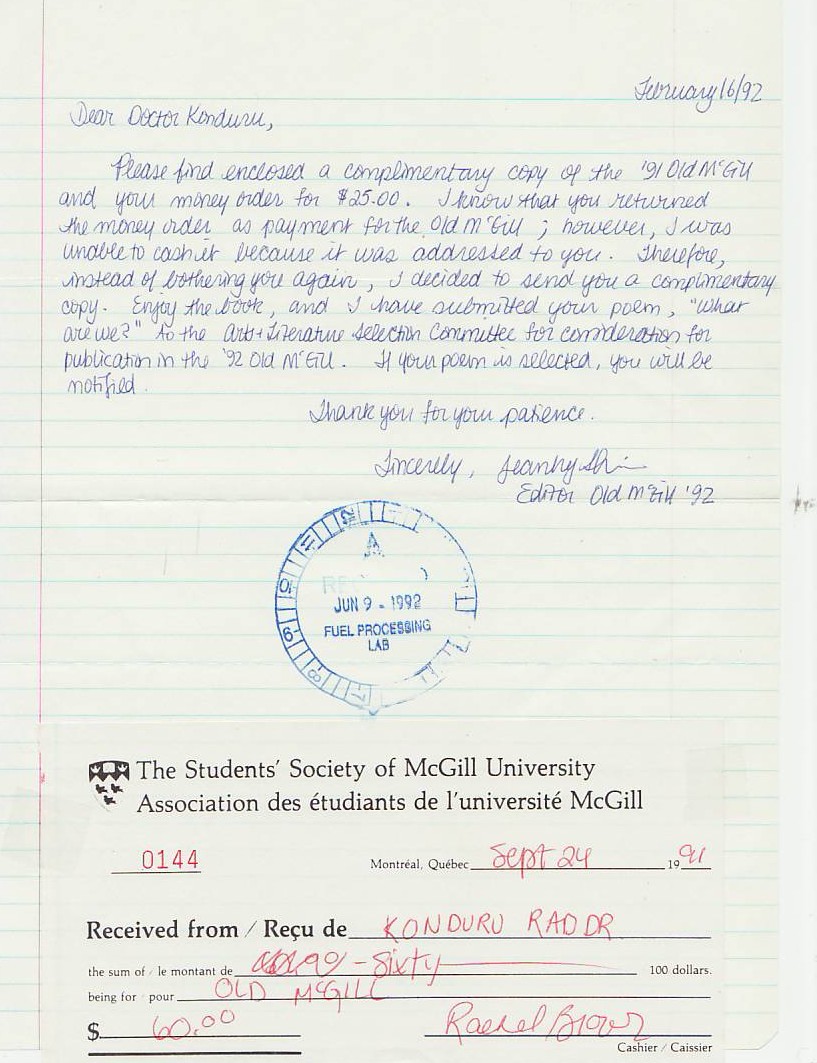 February 16/92
Dear Doctor Konduru,
Please find enclosed a complimentary copy of the '91 Old McGill
and your money order for $25.00. I know that you returned
the money order as payment for the Old McGill; however, I was
unable to cash it because it was addressed to you. Therefore,
instead of bothering you again, I decided to send you a complimentary
copy. Enjoy the book, and I have submitted your poem, "What
are we?" to the Arts + Literature Selection Committee for consideration for
publication in the '92 Old McGill. If your poem is selected, you will be
notified.
Thank you for your patience.
Sincerely,
Editor Old McGill '92
JUN 9 - 1992
FUEL PROCESSING
LAB
The Students' Society of McGill University
Association des étudiants de l'université McGill
0144
Montréal, Québec Sept 24 1991
Received from / Reçu de KONDURU RAO DR
the sum of / le montant de Sixty 100 dollars.
being for / pour OLD McGILL
$ 60.00
Cashier / Caissier